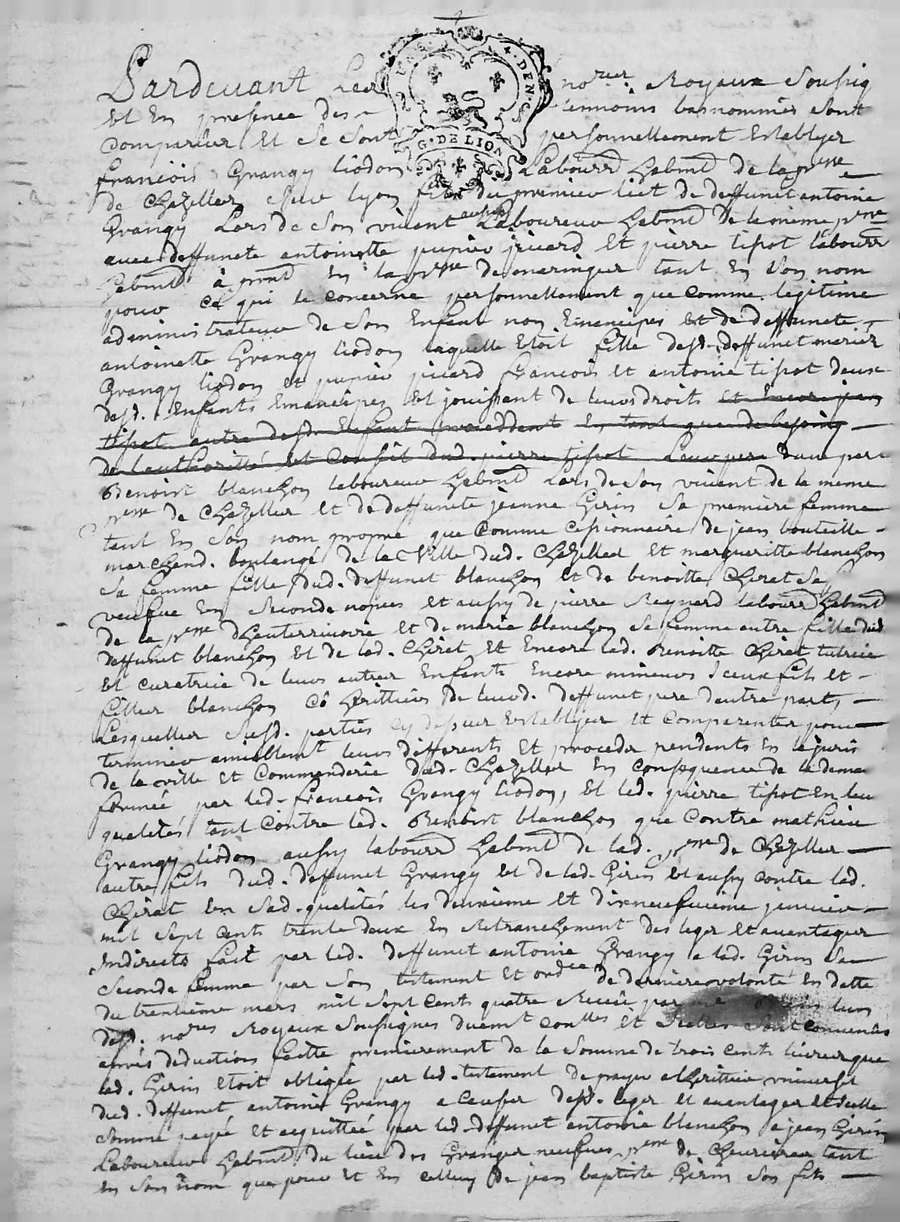 Pardevant Les no.res Royaux Soussig
Et En presence des temoins basnommés Sont
Comparus Et Se Sont personnellement Establyes
francois Grangy liodon Labourr habnt de la p.sse
de Chazelles Sur lyon fils du premier lict de deffunct antoine
Grangy Lors de Son vivant aussy Laboureur habnt De la meme p.sse
avec deffuncte antoinette pupier picard Et pierre tipot labourr
habnt à pnt En la p.sse de maringes tant En Son nom
pour ce qui le concerne personnellement que comme legitime
administrateur de Son Enfant non Emencipés et de deffuncte
antoinette Grangy liodon laquelle Etoit fille desd. deffunct mariés
Grangy liodon Et pupier picard francois Et antoine tipot deux
desd. Enfants Emancipes Et jouissant de leurs droits et Encore jean
tipot autre desd. Enfant procedant En tant que de besoing
de l'authoritté Et Conseil dud. pierre tipot Leur pere Dune part
Benoist blanchon laboureur habnt Lors de Son vivant de la meme
p.sse de Chazelles Et de deffuncte jeanne Girin Sa premiere femme
tant En Son nom propre que comme Cessionnaire de jean bouteille
marchand boulangé de la Ville dud. Chazelles Et margueritte blanchon
Sa femme fille dud. deffunct blanchon Et de benoitte Chirat Sa
veufve En Seconde nopces Et aussy de pierre Reynard labourr habnt
de la p.sse Et de marie blanchon Sa femme autre fille dud
deffunct blanchon Et de lad. Chirat Et Encore lad. Benoitte Chirat tutrice
Et curatrice de leurs autres Enfants Encore mineurs Iceux fils et
filles blanchon Cô herittiers de leurd. deffunct pere dautre part,
Lesquelles Susd. parties cy dessus Establyes Et Comparentes pour
terminer amiablemt leurs differents Et procedés pendents En la juris
de la ville Et Commanderie dud. Chazelles En consequence de la dema
formée par led. francois Grangy liodon, Et led. pierre tipot En leu
qualités tant Contre led. Benoist blanchon que Contre mathieu
Grangy liodon aussy labourr habnt de lad. p.sse de Chazelles
autre fils dud. deffunct Grangy Et de lad. Girin Et aussy contre lad.
Chirat En Sad. qualités les deuxieme Et dixneufvieme janvier
mil Sept Cents trente deux En Retranchement des legs Et avantages
Indirects fait par led. deffunct antoine Grangy a lad. Girin Sa
Seconde femme par Son testement Et ordce de derniere volonté En datte
du trentieme mars mil Sept Cents quatre Receu par lun
desd. no.res Royaux Soussignes duemt conlles Et Scellés Sont convenus
deductions faitte premierement de la Somme de trois Cents livres que
lad. Girin Etoit obligée par led. testement de payer a lherittier universel
dud. deffunct antoine Grangy a Causer desd. legs Et avantages Et Icelle
Somme payée Et acquittée par led. deffunct antoine blanchon a jean Girin
Laboureur habnt du lieu des Granges neufves p.sse de Chevrieres tant
En Son nom que pour Et En Celluy de jean baptiste Girin Son fils